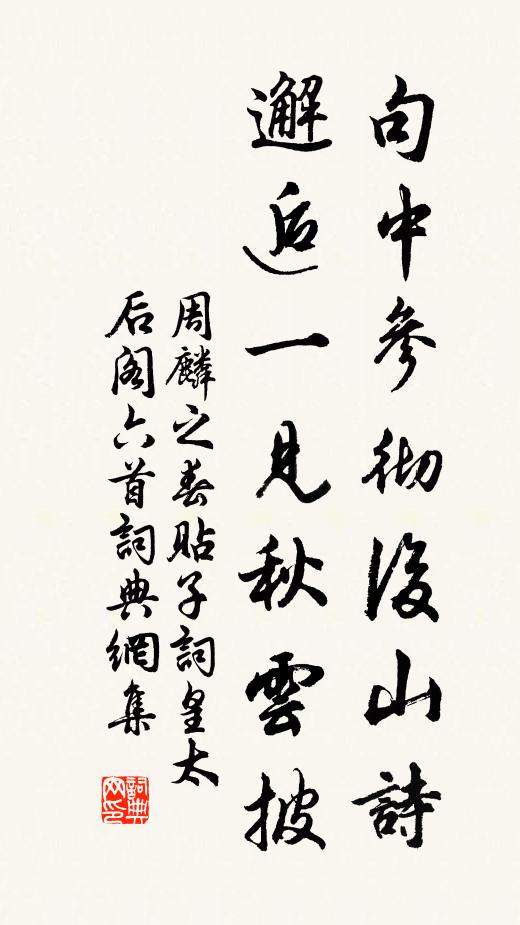 句中參彻後山詩
邂逅一見秋雲披
周麟之春貼子詞皇太
后阁六首詞典網集
詞典
网印